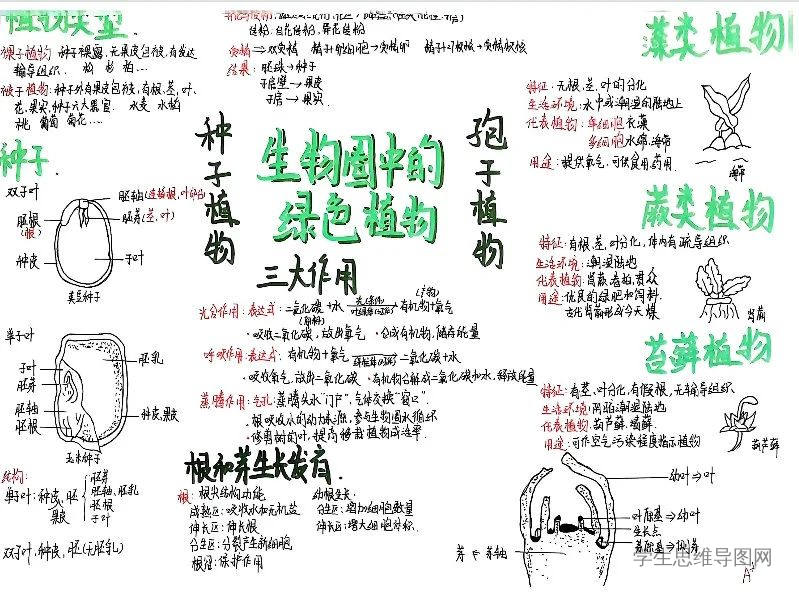 植物类型
裸子植物: 种子裸露,无果皮包被,有发达
输导组织. 松 杉 柏...
被子植物: 种子外有果皮包被,有根、茎、叶、
花、果实、种子六大器官. 水麦 水稻
桃 葡萄 菊花....
种子.
双子叶
胚轴(连接根,叶部分)
胚芽(茎,叶)
胚根
(根)
种皮
子叶
菜豆种子
单子叶
子叶
胚芽
胚轴
胚根
胚乳
种皮、果皮
玉米种子
结构:
单子叶:种皮、胚
果皮
胚芽
胚轴、胚乳
胚根
子叶
双子叶:种皮,胚(无胚乳)
受精 ⇒ 双受精
结果: 胚珠→种子
子房壁→果皮
子房→果实.
种子植物
生物圈中的
绿色植物
孢子植物
三大作用
(产物)
光合作用: 表达式: 二氧化碳+水 有机物+氧气
(原料)
·吸收二氧化碳, 放出氧气 ·合成有机物, 储存能量
呼吸作用: 表达式: 有机物+氧气 → 二氧化碳+水
·吸收氧气, 放出二氧化碳 ·有机物分解成二氧化碳和水, 释放能量
蒸腾作用: 气孔: 蒸腾失水"门户", 气体交换"窗口".
·根吸收水的动力来源, 参与生物圈水循环
·修剪树的叶, 提高移栽植物成活率.
根和芽生长发育.
根: 根尖结构功能
成熟区: 吸收水和无机盐
伸长区: 伸长根
分生区: 分裂产生新细胞
根冠: 保护作用
幼根生长:
分生区: 增加细胞数量
伸长区: 增大细胞体积.
藻类植物
特征: 无根、茎、叶的分化
生活环境: 水中或潮湿的陆地上
代表植物: 单细胞衣藻
多细胞水绵、海带
用途: 提供氧气, 可供食用药用.
海带
蕨类植物
特征: 有根、茎、叶分化, 体内有疏导组织.
生活环境: 潮湿陆地
用途: 优良的绿肥和饲料.
苔藓植物
特征: 有茎、叶分化, 有假根, 无输导组织.
生活环境: 阴暗潮湿陆地
代表植物: 葫芦藓、墙藓.
用途: 可作空气污染程度指示植物
葫芦藓
幼叶→叶
叶原基→幼叶
生长点
芽原基→侧芽
芽轴
学生思维导图网
A+